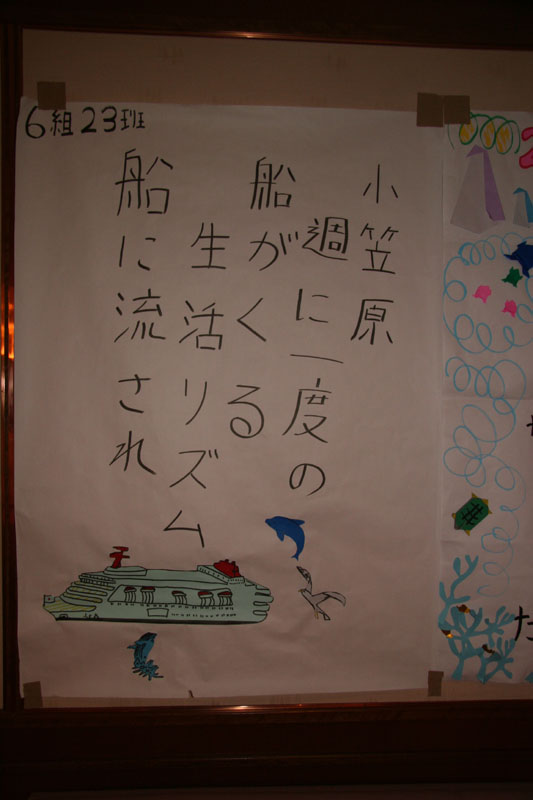 6組23班
小笠原
週に一度の
船がくる
生活リズム
船に流され